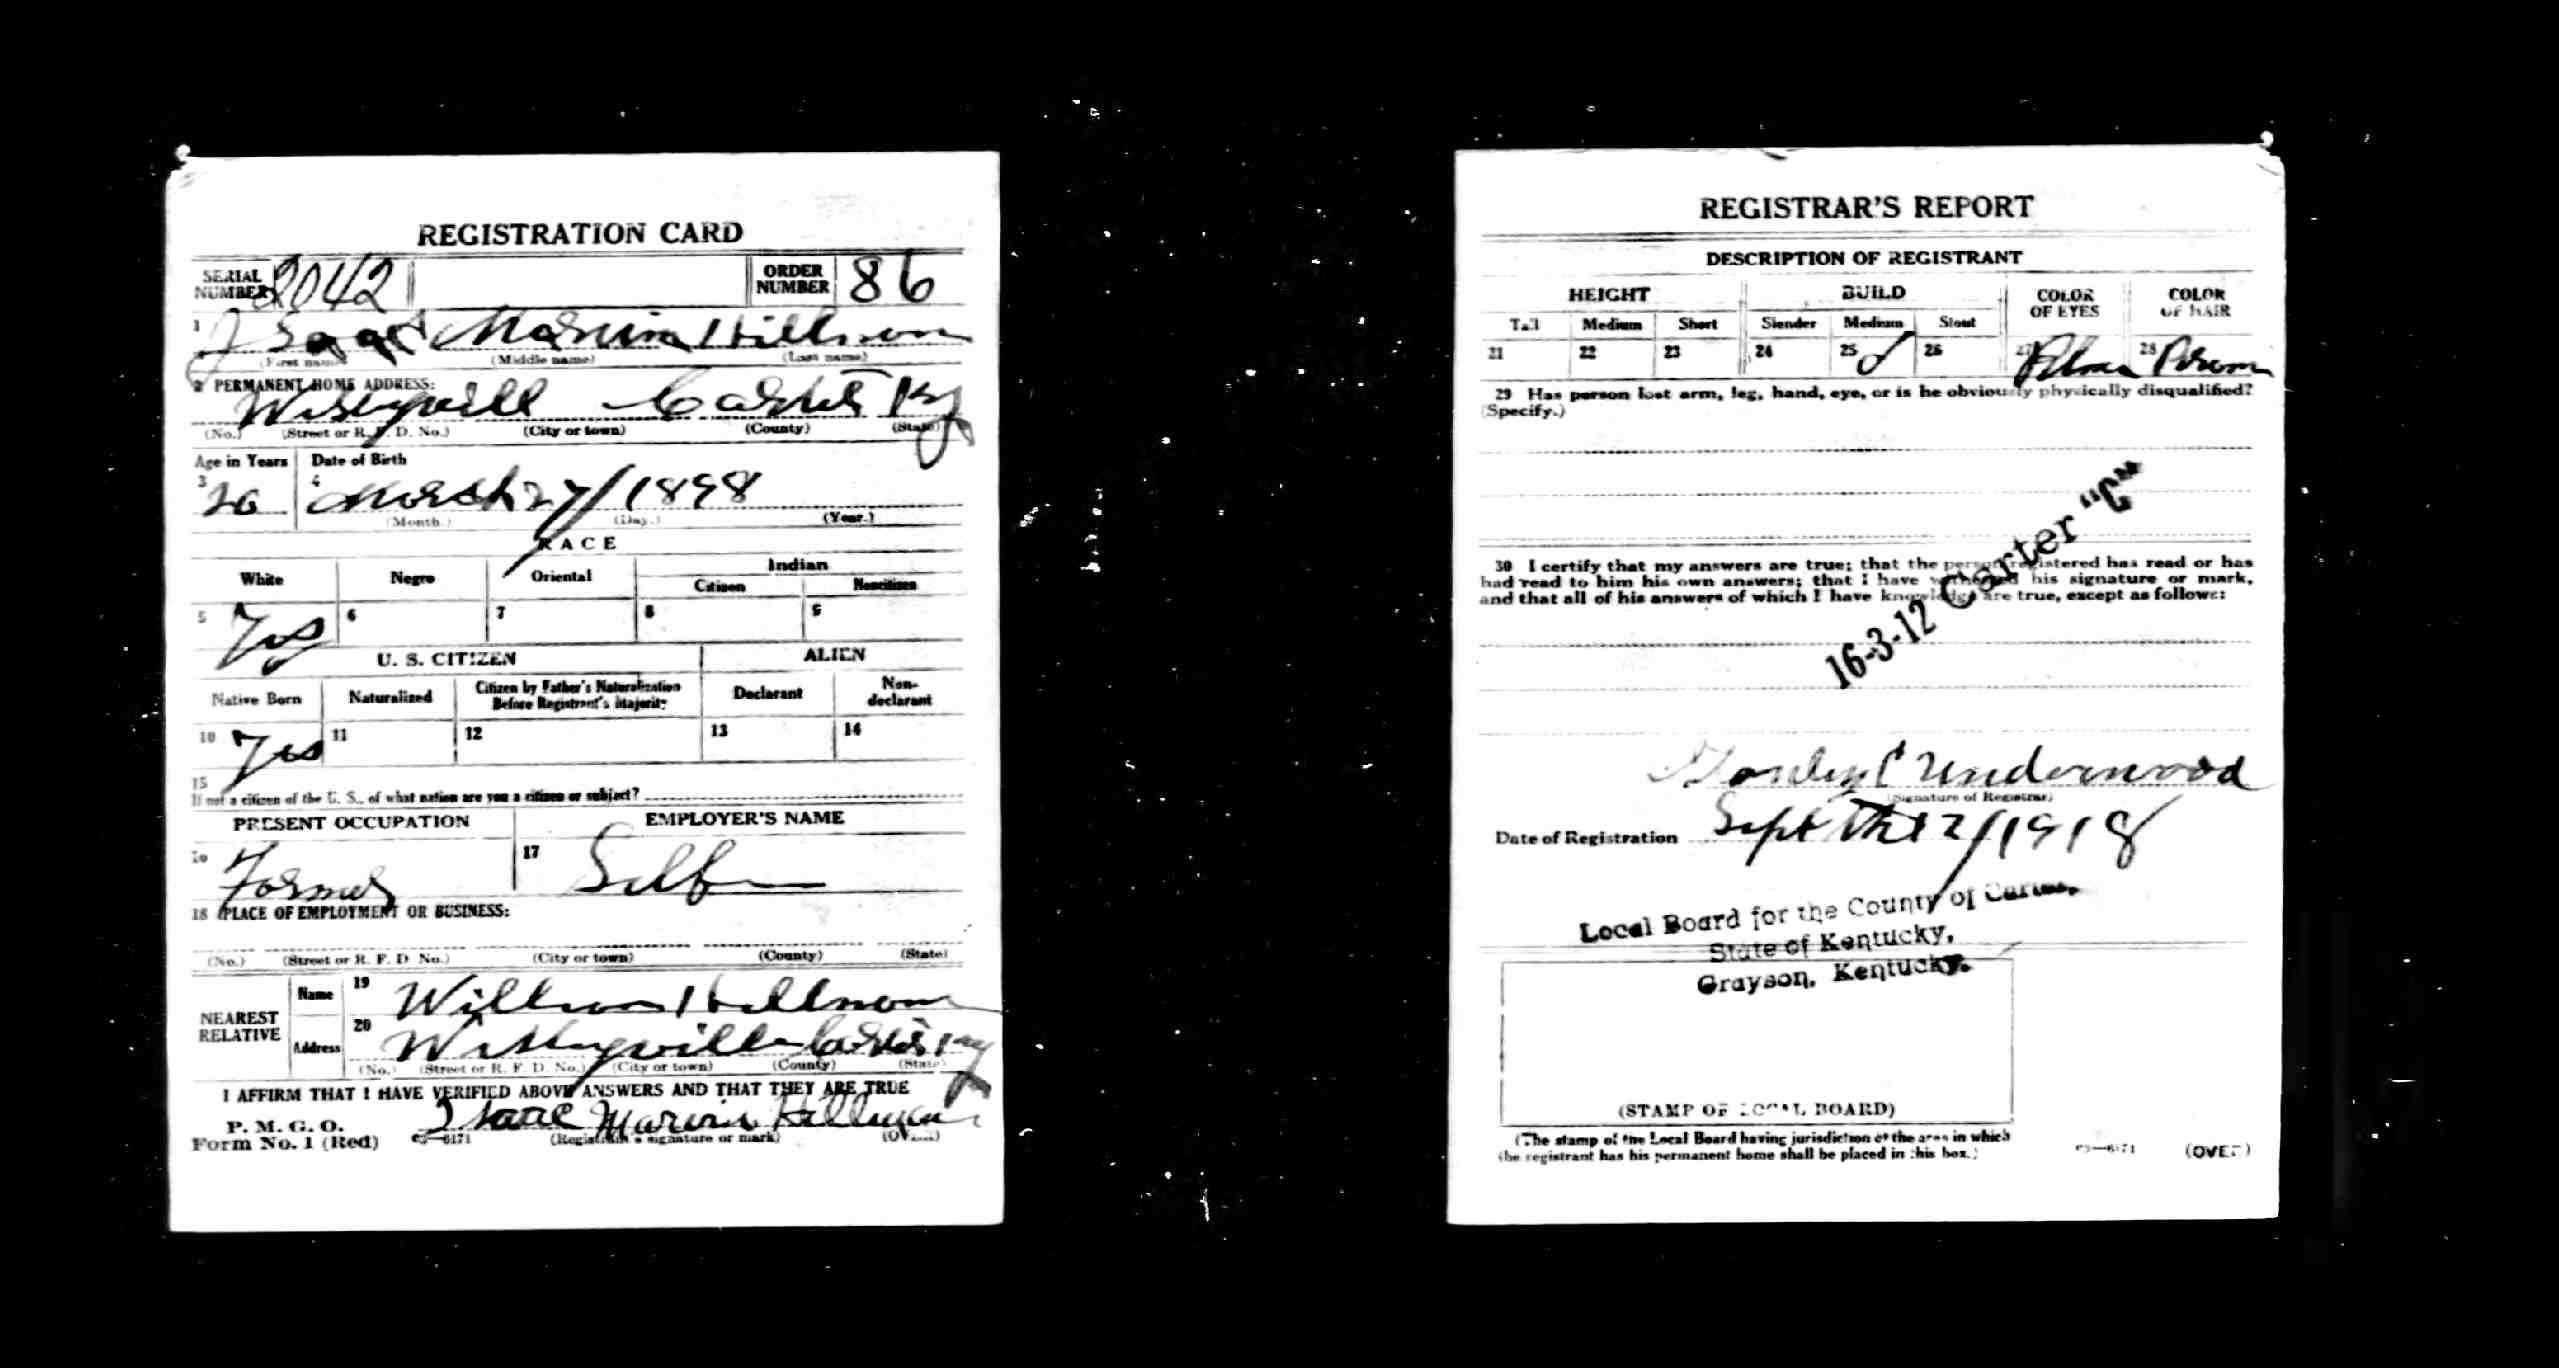 REGISTRATION CARD
SERIAL NUMBER 2042 ORDER NUMBER 86
1 Isaac Marvin Hillman
(First name) (Middle name) (Last name)
2 PERMANENT HOME ADDRESS:
Carter Ky
(No.) (Street or R. F. D. No.) (City or town) (County) (State)
Age in Years Date of Birth
3 20 4 March 27/1898
(Month.) (Day.) (Year.)
RACE
White Negro Oriental Indian
Citizen Noncitizen
5 Yes 6 7 8 9
U. S. CITIZEN ALIEN
Native Born Naturalized Citizen by Father's Naturalization Before Registrant's Majority Declarant Non-declarant
10 Yes 11 12 13 14
15 If not a citizen of the U. S., of what nation are you a citizen or subject?
PRESENT OCCUPATION EMPLOYER'S NAME
16 Farmer 17 Self
18 PLACE OF EMPLOYMENT OR BUSINESS:
(No.) (Street or R. F. D. No.) (City or town) (County) (State)
NEAREST RELATIVE Name 19 William Hillman
Address 20 Carter Ky
(No.) (Street or R. F. D. No.) (City or town) (County) (State)
I AFFIRM THAT I HAVE VERIFIED ABOVE ANSWERS AND THAT THEY ARE TRUE
P. M. G. O.
Form No. 1 (Red) 03—6171 Isaac Marvin Hillman
(Registrant's signature or mark) (OVER)
REGISTRAR'S REPORT
DESCRIPTION OF REGISTRANT
HEIGHT BUILD COLOR OF EYES COLOR OF HAIR
Tall Medium Short Slender Medium Stout
21 22 23 24 25 26 27 28 Brown
29 Has person lost arm, leg, hand, eye, or is he obviously physically disqualified?
(Specify.)
30 I certify that my answers are true; that the person registered has read or has
had read to him his own answers; that I have witnessed his signature or mark,
and that all of his answers of which I have knowledge are true, except as follows:
16-3-12 Carter "C"
Underwood
(Signature of Registrar)
Date of Registration Sept 12/1918
Local Board for the County of Carter,
State of Kentucky,
Grayson, Kentucky.
(STAMP OF LOCAL BOARD)
(The stamp of the Local Board having jurisdiction of the area in which
the registrant has his permanent home shall be placed in this box.)
03—6171 (OVER)